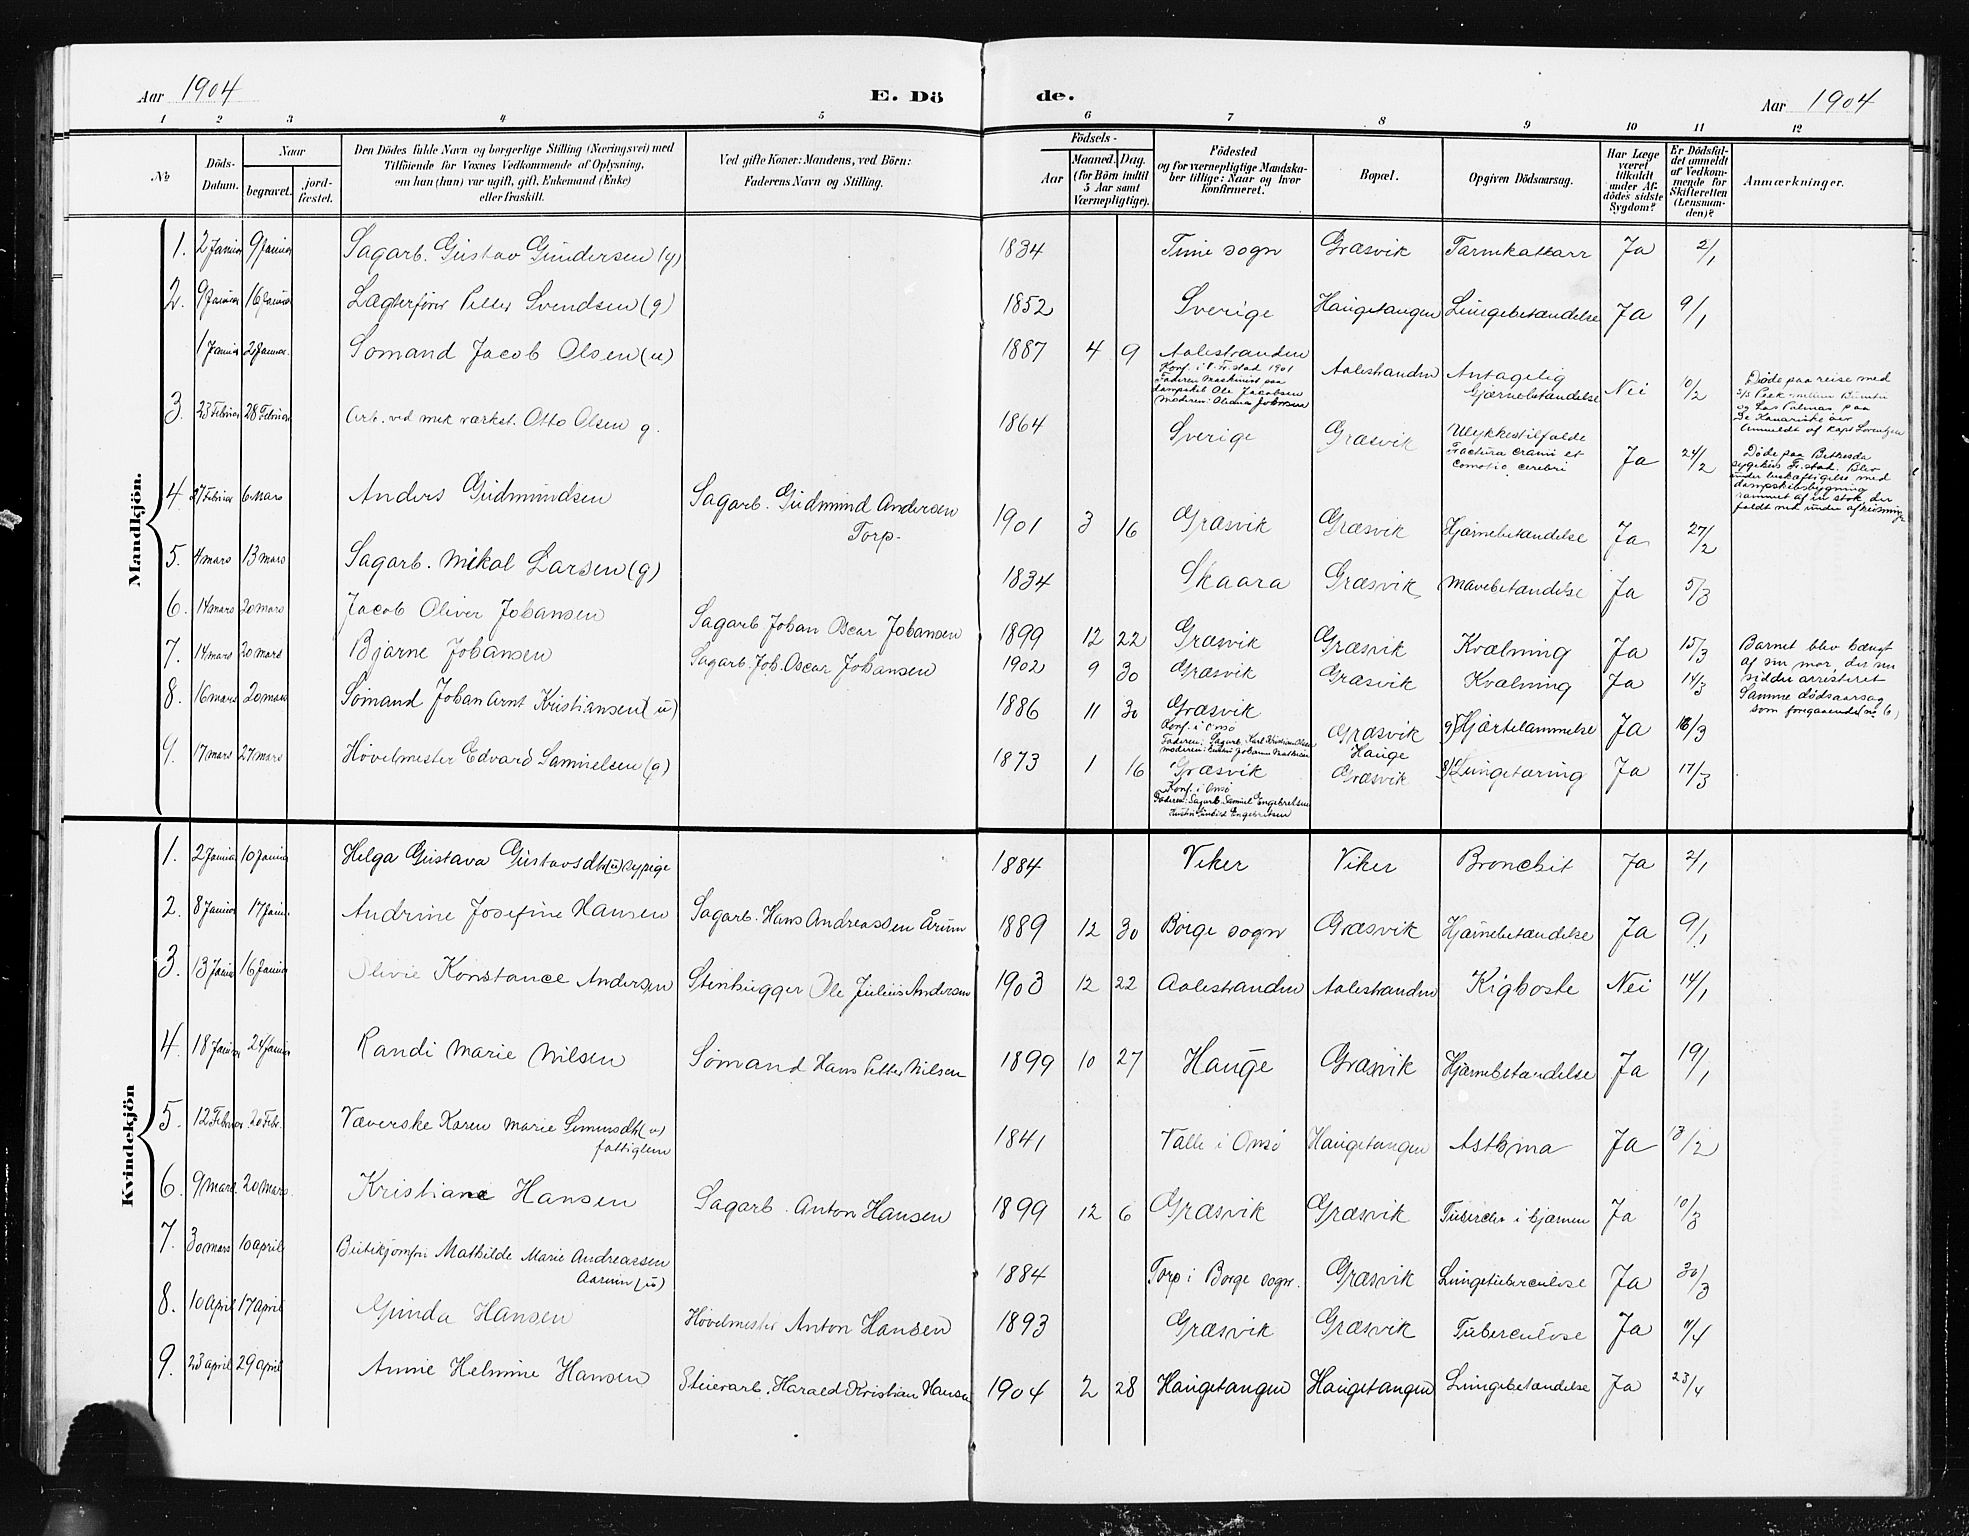 Aar 1904 E. Dö de. Aar 1904
1 2 3 4 5 6 7 8 9 10 11 12
No
Döds-Datum.
Naar
begravet. jord-fæstet.
Den Dödes fulde Navn og borgerlige Stilling (Næringsvei) med
Tilföiende for Voxnes Vedkommende af Oplysning,
om han (hun) var ugift, gift, Enkemand (Enke)
eller fraskilt.
Ved gifte Koner: Mandens, ved Börn:
Faderens Navn og Stilling.
Födsels-
Aar
Maaned. Dag.
(for Börn indtil
5 Aar samt
Værnepligtige).
Födested
og for værnepligtige Mandska-
ber tillige: Naar og hvor
konfirmeret.
Bopæl.
Opgiven Dödsaarsag.
Har Læge
været
tilkaldt
under Af-
dödes sidste
Sygdom?
Er Dödsfal-
det anmeldt
af Vedkom-
mende for
Skifteretten
(Lensman-
den)?
Anmærkninger.
Mandkjön.
1. 2 Januar 9 Januar Sagarb. Gustav Gundersen (g) 1834 Tune sogn Græsvik Tarmkatarr Ja 2/1
2. 9 Januar 16 Januar Lægterfører Petter Svendsen (g) 1852 Sverige Haugetangen Lungebetændelse Ja 9/1
1 Januar 2 Januar. Sømand Jacob Olsen (u) 1887 4 9 Aalestranden Aalestranden Antagelig Gjærnebetændelse Nei 10/2
Konf. i Fr.stad 1901
Faderen Maskinist paa
dampskib Ole Jacobsen
Moderen:
Døde paa reise med
og Las Palmas paa
De Kanariske øer
Anmeldt af Kapt Lorentzen
3. 23 Februar 28 Februar Arb. ved mek værkst. Otto Olsen g. 1864 Sverige Græsvik Ulykkestilfælde Ja 24/2
Fractura cranii et
comotio cerebri
Døde paa Bethesda
sygehus Fr.stad. Blev
under beskæftigelse med
dampskibsbygning
rammet af en stok der
faldt ned under
4. 27 Februar 6 Mars Anders Gudmundsen Sagarb. Gudmund Andersen Torp. 1901 3 16 Græsvik Græsvik Hjærnebetændelse Ja 27/2
5. 4 mars 13 mars Sagarb. Mikal Larsen (g) 1834 Skaara Græsvik Mavebetændelse Ja 5/3
6. 14 mars 20 mars Jacob Oliver Johansen Sagarb Johan Oscar Johansen 1899 12 22 Græsvik Græsvik Kvælning Ja 15/3 Barnet blev hængt
af sin mor, der nu
sidder arresteret
7. 14 mars 20 mars Bjarne Johansen Sagarb. Joh. Oscar Johansen 1902 9 30 Græsvik Græsvik Kvælning Ja 14/3 Samme dödsaarsag
som foregaaende (no 6)
8. 16 mars 20 mars Sømand Johan Arnt Kristiansen (u) 1886 11 30 Græsvik Græsvik Hjærtelammelse Ja 16/3
Konf. i Onsø
Faderen: Sagarb. Karl Kristian Olsen
Hauge
9. 17 mars 27 mars Høvelmester Edvard Samuelsen (g) 1873 1 16 Græsvik Græsvik Lungetæring Ja 17/3
Konf. i Onsø
Faderen: Sagarb. Samuel Engebretsen
Engebretsen
Kvindekjön
1. 2 Januar 10 Januar Helga Gustava Gustavsdtr (u) sypige 1884 Viker Viker Bronchit Ja 2/1
2. 8 Januar 17 Janu. Andrine Josefine Hansen Sagarb. Hans Andreassen Årum 1889 12 30 Borge sogn Græsvik Hjærnebetændelse Ja 9/1
3. 13 Januar 16 Januar Olivie Konstance Andersen Stenhugger Ole Julius Andersen 1903 12 22 Aalestranden Aalestranden Kighoste Nei 14/1
4. 18 Januar 24 Januar Randi Marie Nilsen Sømand Hans Petter Nilsen 1899 10 27 Hauge Græsvik Hjærnebetændelse Ja 19/1
5. 12 Februar 20 Febr. Væverske Karen Marie Simensdtr (u) fattiglem 1841 Talle i Onsø Haugetangen Asthma Ja 13/2
6. 9 mars. 20 mars. Kristiane Hansen Sagarb. Anton Hansen 1899 12 6 Græsvik Græsvik Tubercler i hjærnen Ja 10/3
7. 30 mars 10 april Butikjomfru Mathilde Marie Andreassen Aarum (u) 1884 Torp i Borge sogn. Græsvik Lungetuberculose Ja 30/3
8. 10 April 17 april Gunda Hansen Høvelmester Anton Hansen 1893 Græsvik Græsvik Tuberculose Ja 11/4
9. 23 april 29 april Anne Helmine Hansen Stuerarb. Harald Kristian Hansen 1904 2 28 Haugetangen Haugetangen Lungebetændelse Ja 23/4